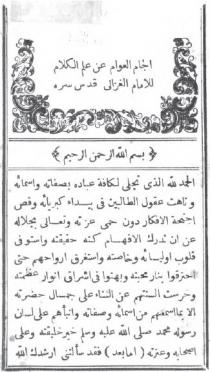 الجام العوام عن علم الكلام
للامام الغزالى قدس سره
بسم الله الرحمن الرحيم
الحمد لله الذى تجلى لكافة عباده بصفاته واسمائه
وتاهت عقول الطالبين فى بيداء كبريائه وقص
اجنحة الافكار دون حمى عزته وتعالى بجلاله
عن ان تدرك الافهام كنه حقيقته واستوفى
قلوب اوليائه وخاصته واستغرق ارواحهم حتى
احترقوا بنار محبته وبهتوا فى اشراق انوار عظمته
وخرست السنتهم عن الثناء على جمال حضرته
الا بما اسمعهم من اسمائه وصفاته وانبأهم على لسان
رسوله محمد صلى الله عليه وسلم خير خليقته وعلى
اصحابه وعترته (اما بعد) فقد سألتنى ارشدك الله